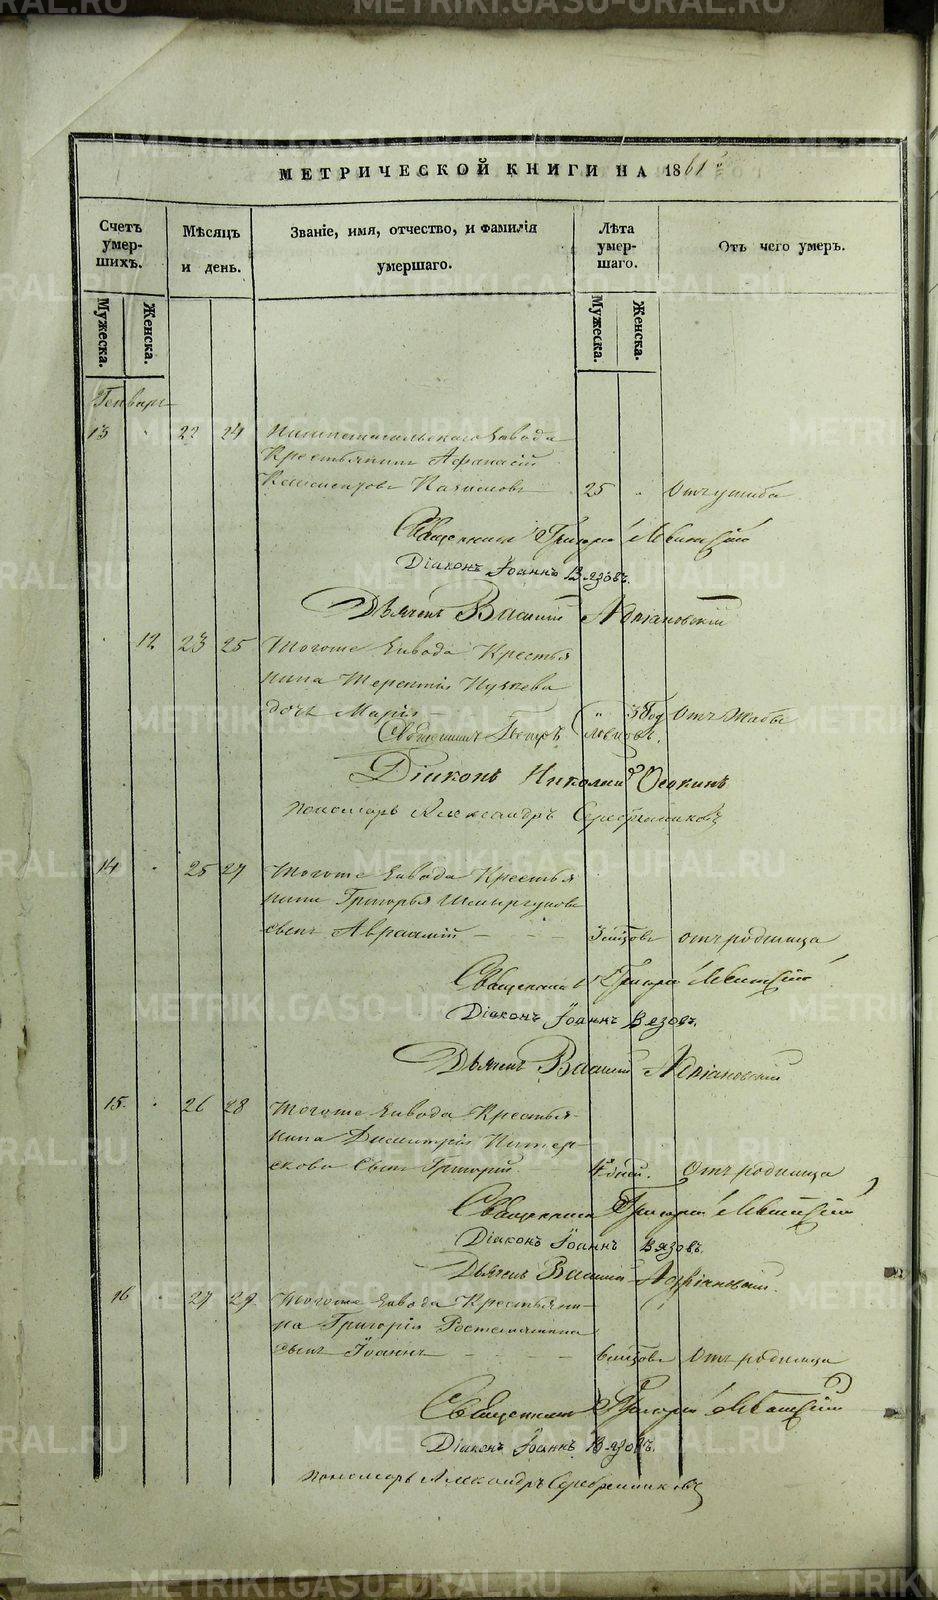 МЕТРИЧЕСКОЙ КНИГИ НА 1861
Счетъ умершихъ.
Мѣсяцъ и день.
Званіе, имя, отчество, и фамилія умершаго.
Лѣта умершаго.
Отъ чего умеръ.
Мужеска.
Женска.
Мужеска.
Женска.
Генварь
13 22 24 завода
Крестьянинъ Афанасій
25 Отъ ушиба
Священникъ Григорій Левитскій
Діаконъ Іоаннъ Вязовъ.
Дьячекъ Василій Адріановскій
12 23 25 Тогоже завода Крестья
нина Терентія
дочь Марія 3 год Отъ Жабы
Священникъ Петръ
Діаконъ Николай Осокинъ
пономарь Александръ Серебренниковъ
14 25 27 Тогоже завода Крестья
нина Григорья
сынъ Авраамій Отъ родимца
Священникъ Григорій Левитскій
Діаконъ Іоаннъ Вязовъ.
Дьячекъ Василій Адріановскій
15. 26 28 Тогоже завода Крестья-
нина Димитрія
сынъ Григорій. Отъ родимца
Священникъ Григорій Левитскій
Діаконъ Іоаннъ Вязовъ.
Дьячекъ Василій Адріановскій.
16 27 29 Тогоже завода Крестьяни-
на Григорія
сынъ Іоаннъ Отъ родимца
Священникъ Григорій Левитскій
Діаконъ Іоаннъ Вязовъ.
пономарь Александръ Серебренниковъ
METRIKI.GASO-URAL.RU